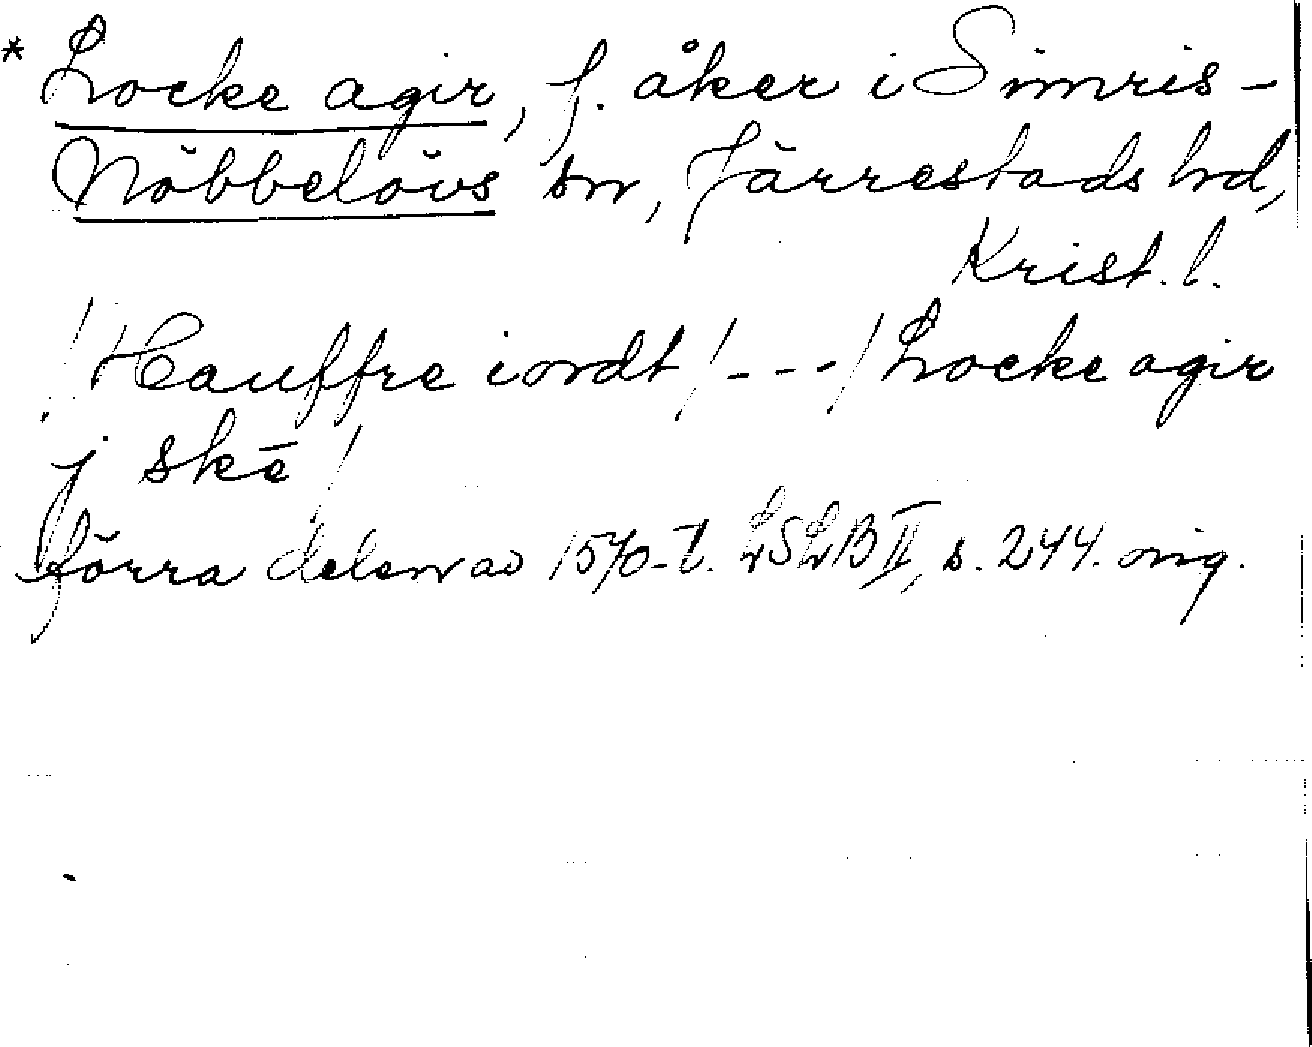 * Locke agir, f. åker i Simris-
Nöbbelövs sn, Järrestads hd,
Krist. l.
/Hauffre iordt/---/Locke agir
j skē/
förra delen av 1570-t. LSLB II, s. 244. orig.